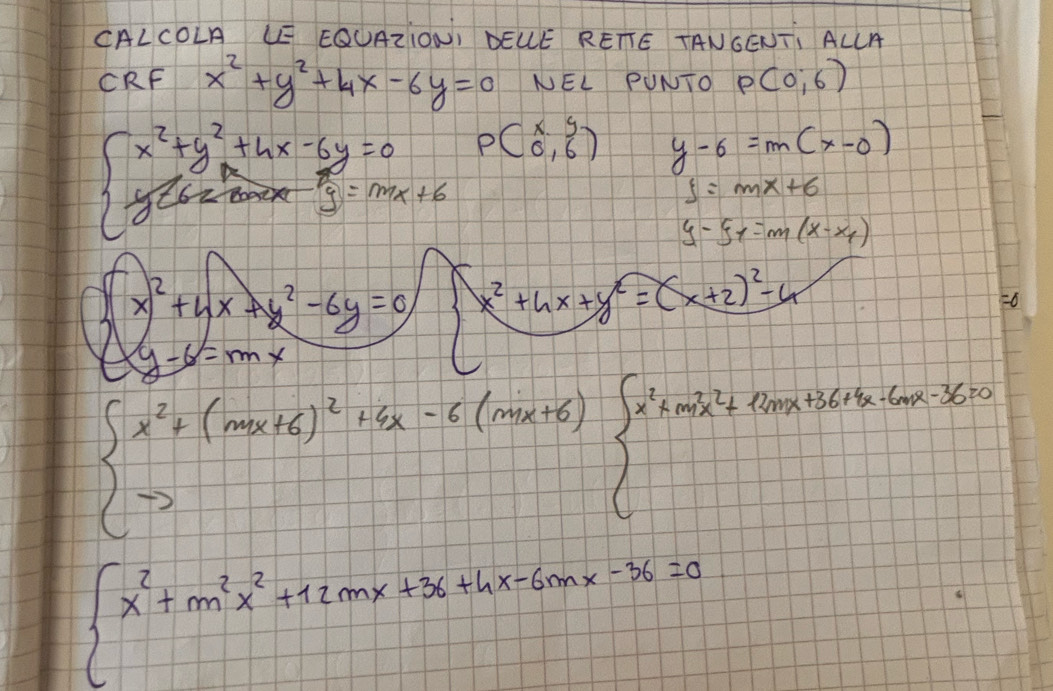 CALCOLA LE EQUAZIONI DELLE RETTE TANGENTI ALLA
CRF x²+y²+4x-6y=0 NEL PUNTO P(0;6)
x²+y²+4x-6y=0 P(0,6) y-6=m(x-0)
x y
y=mx+6 y=mx+6
y-y₁=m(x-x₁)
x²+4x+y²-6y=0 x²+4x+y²=(x+2)²-4 =0
y-6=mx
x²+(mx+6)²+4x-6(mx+6) x²+m²x²+12mx+36+4x-6mx-36=0
→
x²+m²x²+12mx+36+4x-6mx-36=0